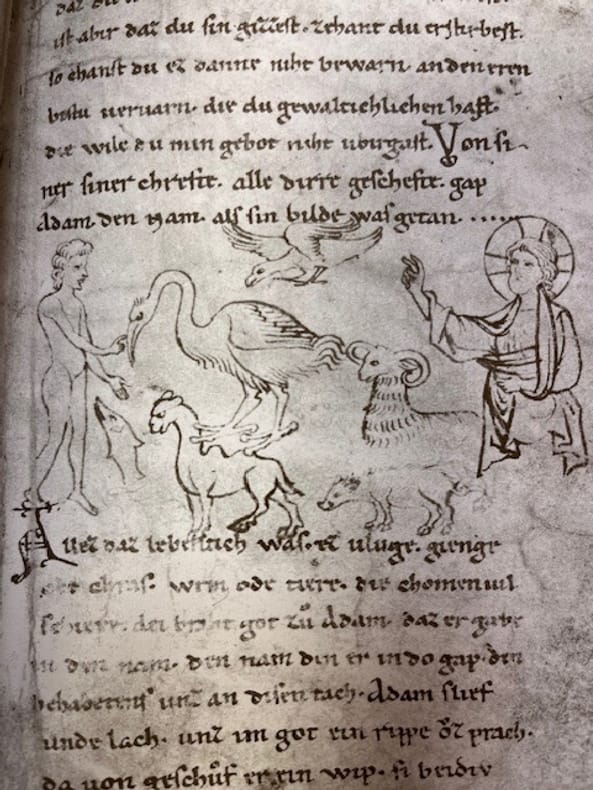 daz du
ist abir daz du sin gizzest. zehant du erstirbest.
so chanst du ez danne niht bewarn. an den eren
bistu ueruarn. die du gewaltichlichen hast.
die wile du min gebot niht ubirgast. Von si-
ner siner chrefte. alle dirre geschefte. gap
Adam. den nam. als sin bilde was getan.....
Allez daz lebentich was. ez vluge. gienge
chras. wrm ode tiere. die chomen uil
schiere. dei braht got zuͦ Adam. daz er gabe
in den nam. den nam den er in do gap. den
behabeten unz an disen tach. Adam slief
unde lach. unz im got ein rippe uz prach.
da uon geschuͦf er ein wip. si beidiv